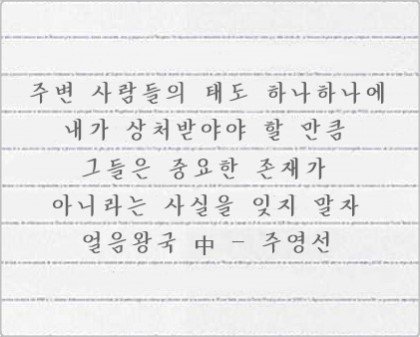 주변 사람들의 태도 하나하나에
내가 상처받아야 할 만큼
그들은 중요한 존재가
아니라는 사실을 잊지 말자
얼음왕국 中 - 주영선